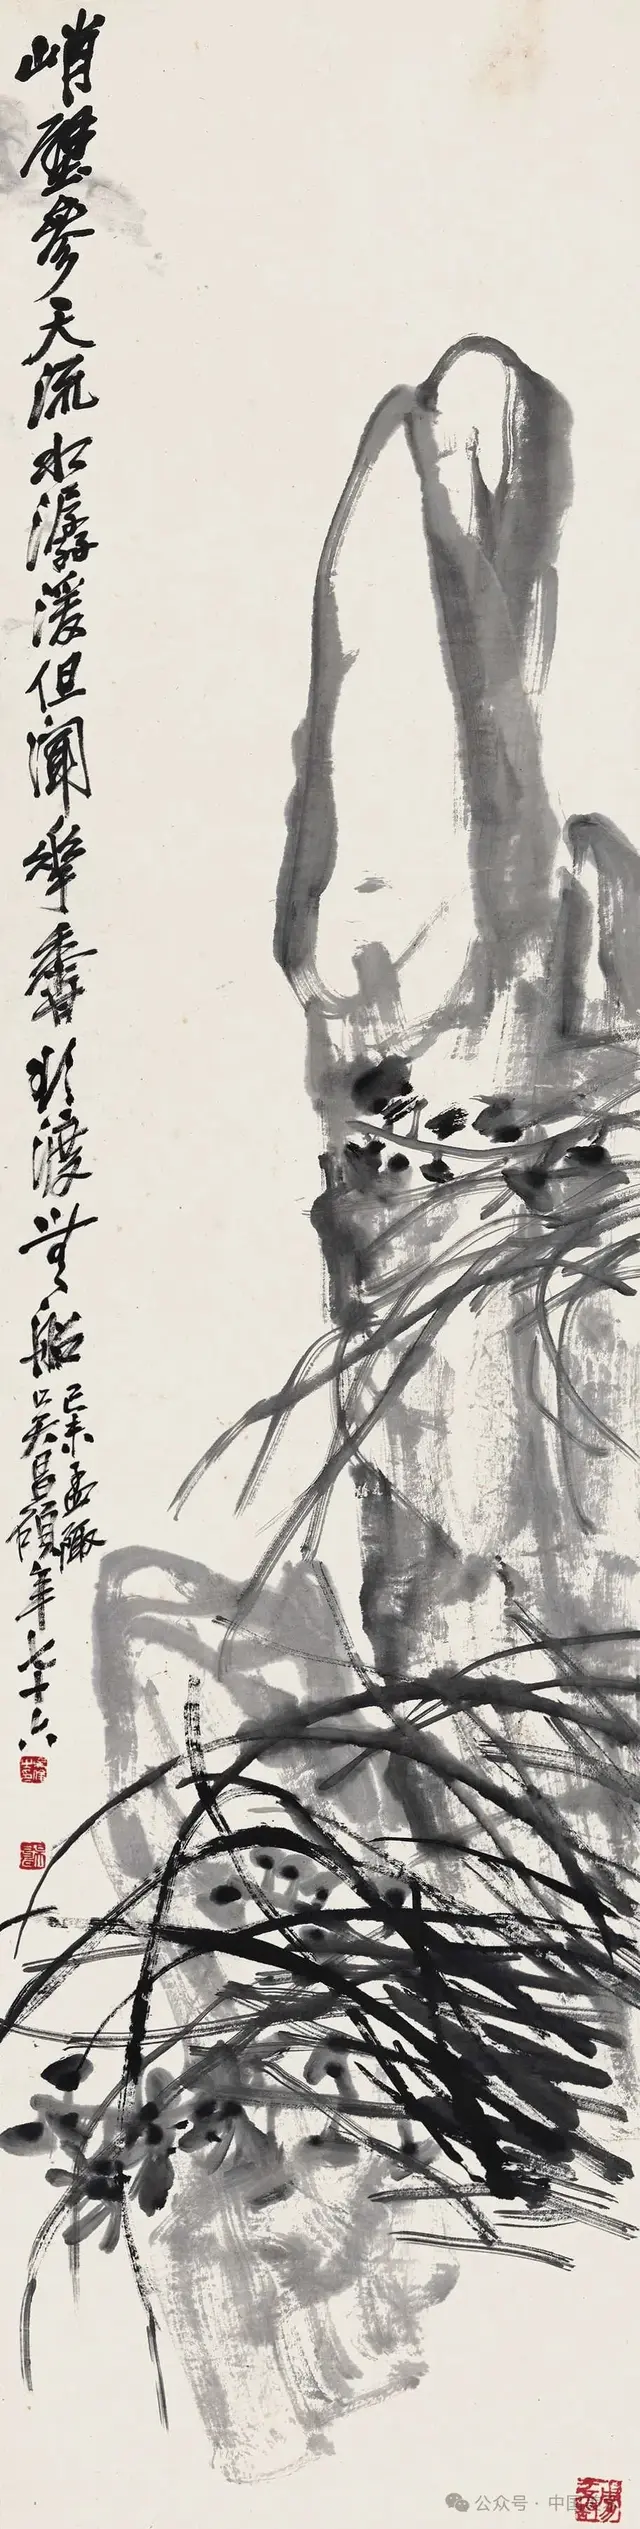 峭壁参天流水潺湲但闻华香欲渡无船
己未孟陬
吴昌硕年七十六
公众号·中国